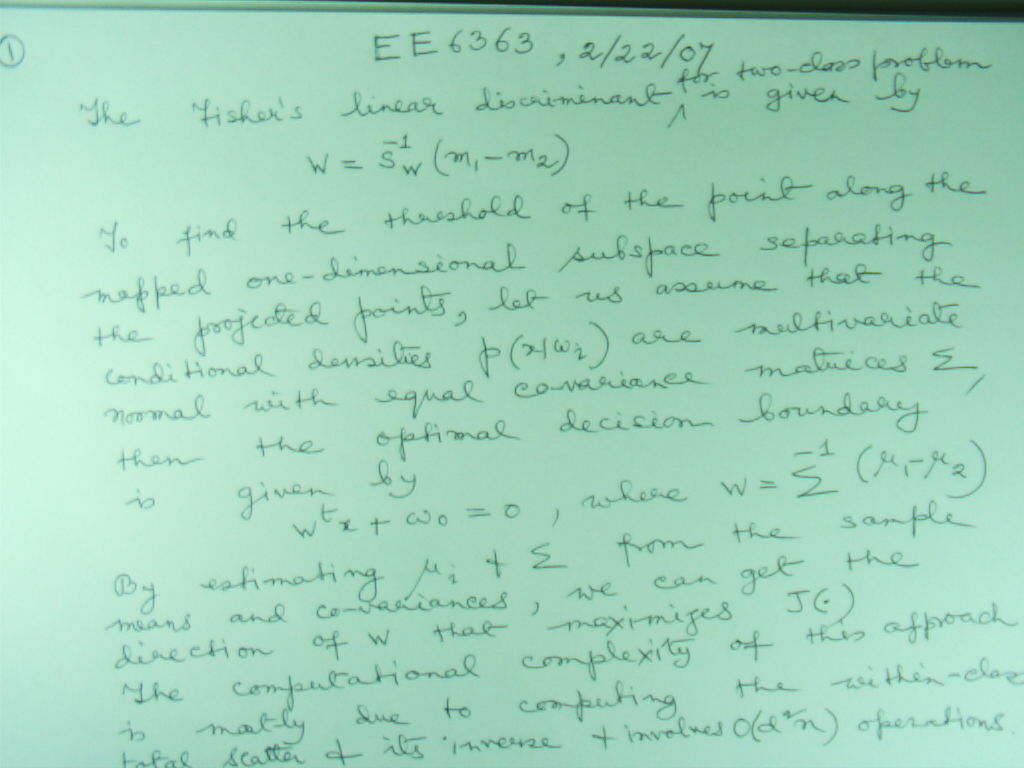 ①
EE 6363, 2/22/07
The Fisher's linear discriminant for two-class problem is given by
W = S_W^{-1} (m_1 - m_2)
To find the threshold of the point along the
mapped one-dimensional subspace separating
the projected points, let us assume that the
conditional densities p(x|ω_i) are multivariate
normal with equal co-variance matrices Σ,
then the optimal decision boundary
is given by
w^t x + ω_0 = 0, where w = Σ^{-1} (μ_1 - μ_2)
By estimating μ_i & Σ from the sample
means and co-variances, we can get the
direction of w that maximizes J(·)
The computational complexity of this approach
is mostly due to computing the within-class
total scatter & its inverse & involves O(d²n) operations.